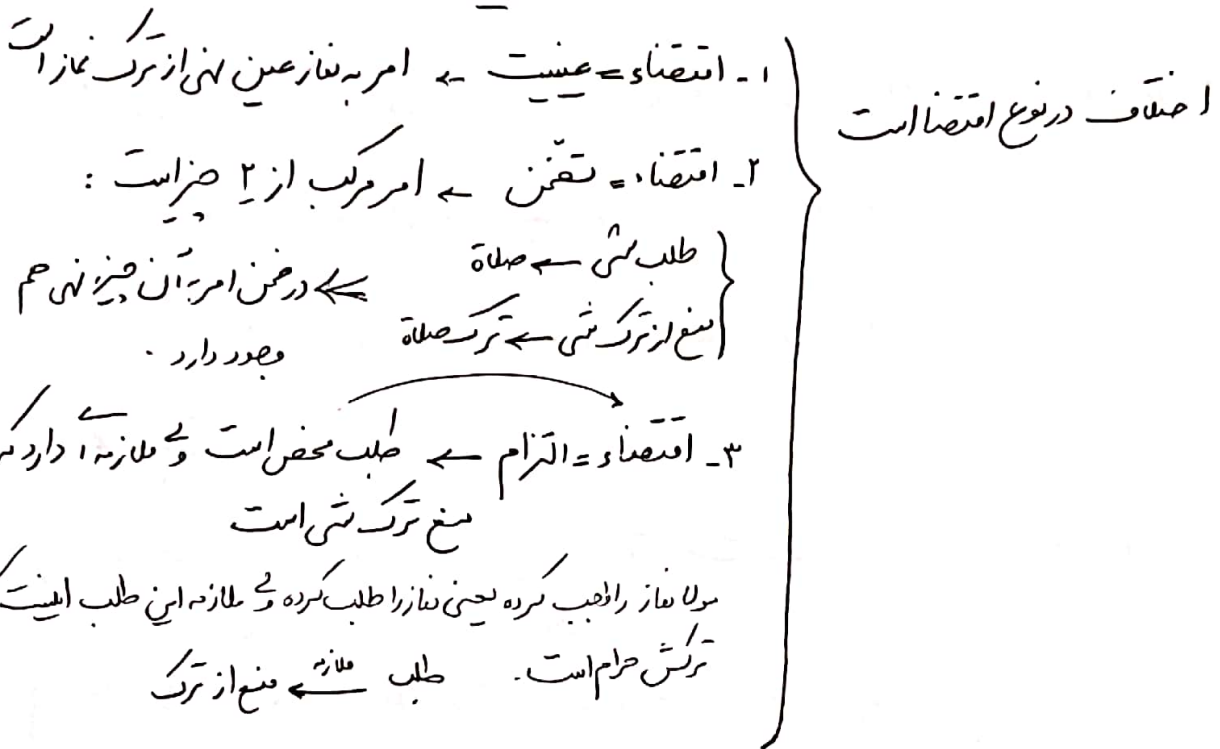 اختلاف در نوع اقتضا است
۱- اقتضاء = عینیت ← امر به نماز عین نهی از ترک نماز است
۲- اقتضاء = تضمّن ← امر مرکب از ۲ چیز است :
طلب شی ← صلاة
منع از ترک شی ← ترک صلاة
در ضمن امر به آن چیز نهی هم
وجود دارد .
۳- اقتضاء = التزام ← طلب محض است ولی ملازمه ای دارد که
منع ترک شی است
مولا نماز را واجب کرده یعنی نماز را طلب کرده ولی ملازمه این طلب اینست که
ترکش حرام است.
طلب ملازمه ← منع از ترک